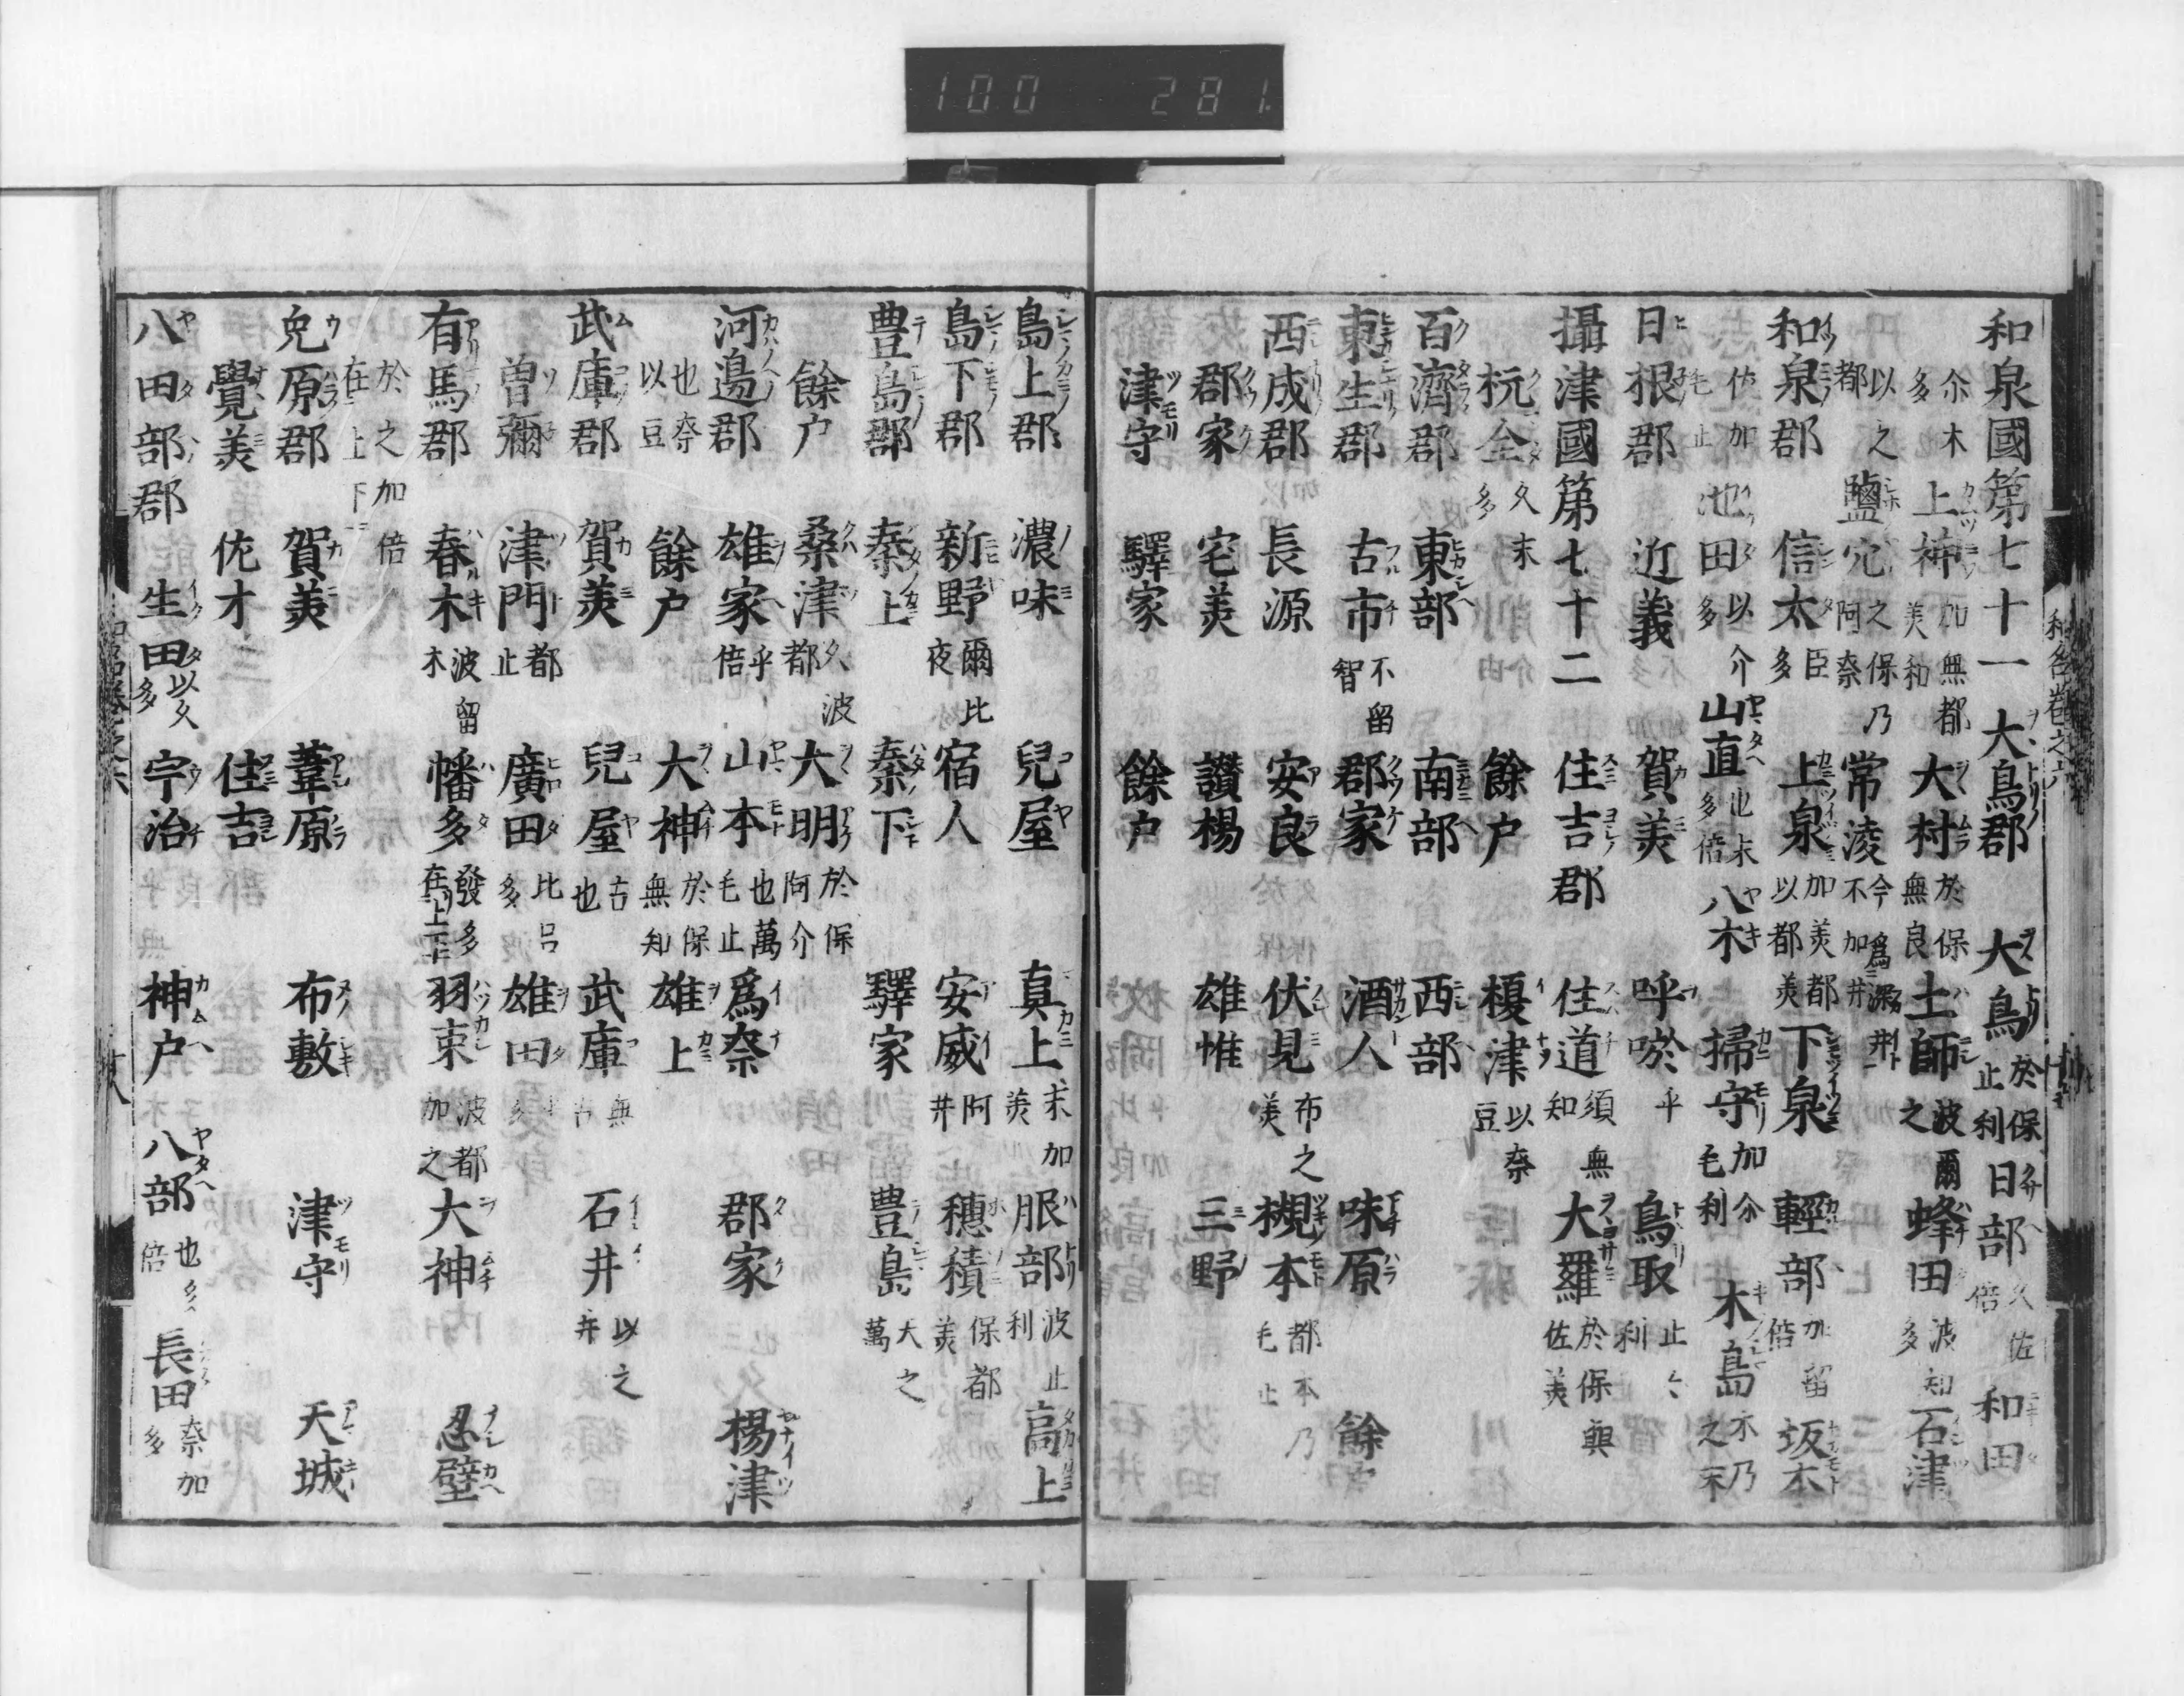 100 281
和泉國第七十一 大鳥郡 大鳥 於保止利 日部 久佐倍 和田
尒木多 上神 加無都美和 大村 於保無良 土師 波爾之 蜂田 波知多 石津
以之都 鹽穴 之保乃阿奈 常淩 今爲深井 不加井
和泉郡 信太 臣多 上泉 加美都以都美 下泉 輕部 加留倍 坂本
池田 以介多 山直 也末多倍 八木 掃守 加尒毛利 木島 木乃之末
日根郡 近義 賀美 呼唹 乎 鳥取 止々利
攝津國第七十二 住吉郡 住道 須無知 大羅 於保與佐美
杭全 久末多 餘户 榎津 以奈豆
百濟郡 東部 南部 西部
東生郡 古市 不留智 郡家 酒人 味原 餘户
西成郡 長源 安良 伏見 布之美 槻本 都木乃毛止
郡家 宅美 讚楊 雄惟 三野
津守 驛家 餘户
島上郡 濃味 兒屋 真上 末加美 服部 波止利 高上
島下郡 新野 爾比夜 宿人 安威 阿井 穗積 保都美
豊島郡 秦上 秦下 驛家 豊島 天之萬
餘户 桑津 久波都 大明 於保阿介
河邉郡 雄家 乎倍 山本 也萬毛止 爲奈 郡家 楊津
也奈以豆 餘户 大神 於保無知 雄上
武庫郡 賀美 兒屋 古也 武庫 無古 石井 以之井
曽彌 津門 都止 廣田 比呂多 雄田
有馬郡 春木 波留木 幡多 發多 在上下 羽束 波都加之 大神 忍壁
於之加倍 在上下
兎原郡 賀美 葦原 布敷 津守 天城
覺美 佐才 住吉
八田部郡 生田 以久多 宇治 神户 八部 也多倍 長田 奈加多